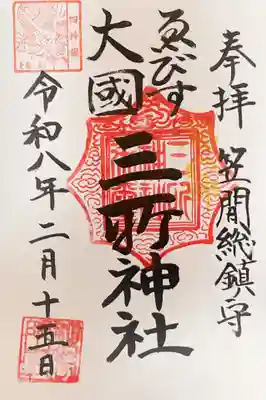 奉拝 笠間総鎮守
ゑびす
大國
三所神社
令和八年二月十五日